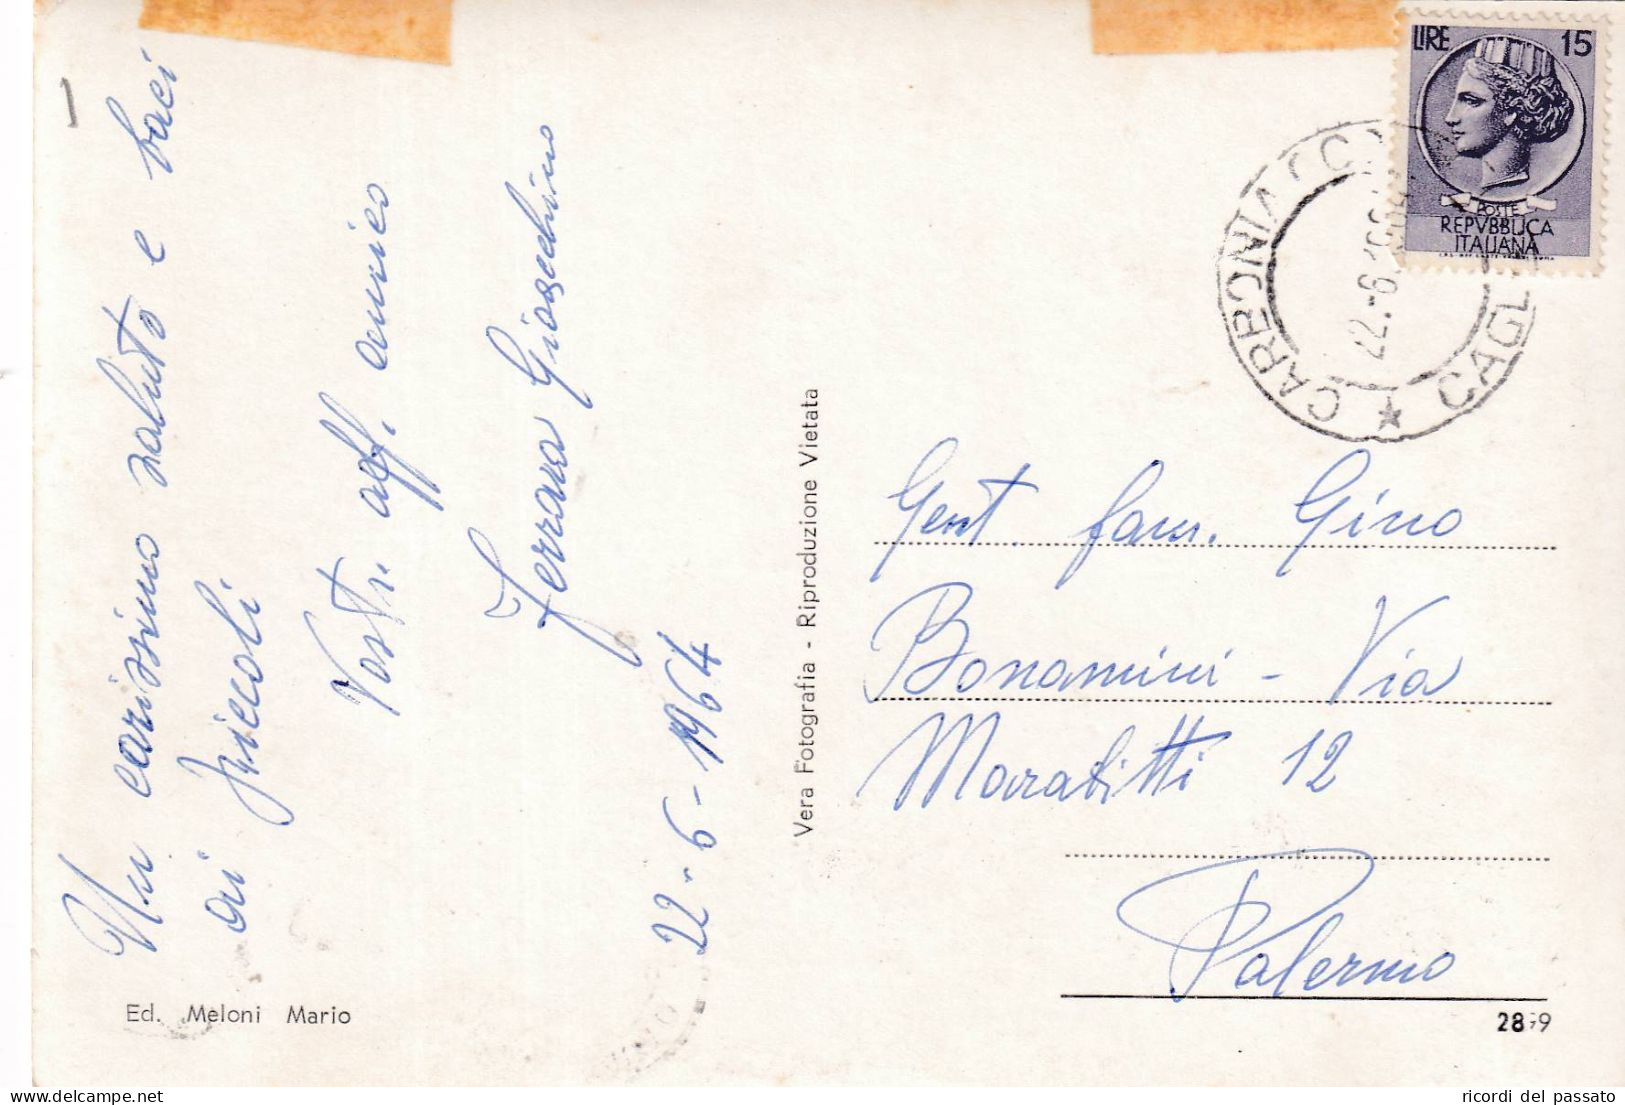 1
Un carissimo saluto e baci
ai piccoli
Vostr. aff. amico
Ferrara Gioacchino
22-6-1964
Ed. Meloni Mario
Vera Fotografia - Riproduzione Vietata
LIRE 15
POSTE
REPVBBLICA
ITALIANA
CARBONIA
22.-6.
Gent. fam. Gino
Bonamini - Via
Marabitti 12
Palermo
ricordi del passato
delcampe.net